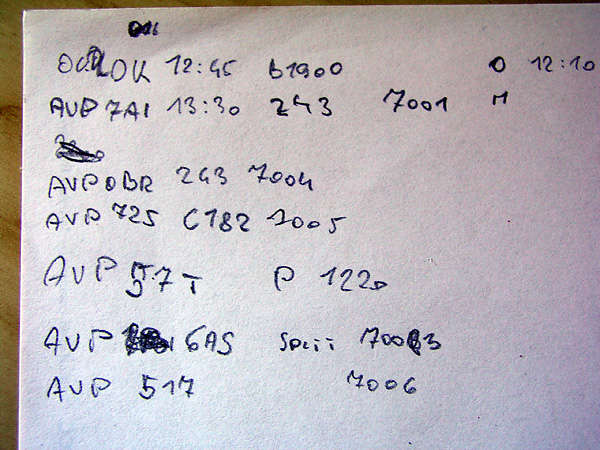 LOK 12:45 b1900 O 12:10
AVP 7AI 13:30 243 7001 M
AVP OBR 243 7004
AVP 725 C182 7005
AVP 57T P 1220
AVP 6AS 7003
AVP 517 7006